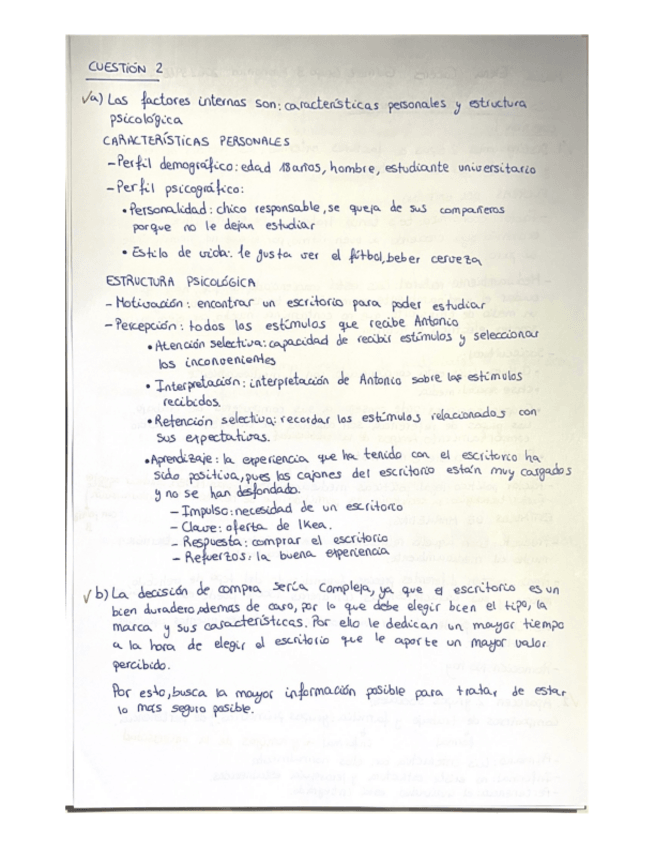 CUESTIÓN 2
√a) Los factores internos son: características personales y estructura
psicológica
CARACTERÍSTICAS PERSONALES
- Perfil demográfico: edad 18 años, hombre, estudiante universitario
- Perfil psicográfico:
• Personalidad: chico responsable, se queja de sus compañeros
porque no le dejan estudiar
• Estilo de vida: le gusta ver el fútbol, beber cerveza
ESTRUCTURA PSICOLÓGICA
- Motivación: encontrar un escritorio para poder estudiar
- Percepción: todos los estímulos que recibe Antonio
• Atención selectiva: capacidad de recibir estímulos y seleccionar
los inconvenientes
• Interpretación: interpretación de Antonio sobre los estímulos
recibidos.
• Retención selectiva: recordar los estímulos relacionados con
sus expectativas.
• Aprendizaje: la experiencia que ha tenido con el escritorio ha
sido positiva, pues los cajones del escritorio están muy cargados
y no se han desfondado.
- Impulso: necesidad de un escritorio
- Clave: oferta de Ikea.
- Respuesta: comprar el escritorio
- Refuerzos: la buena experiencia
√b) La decisión de compra sería compleja, ya que el escritorio es un
bien duradero, ademas de caro, por lo que debe elegir bien el tipo, la
marca y sus características. Por ello le dedican un mayor tiempo
a la hora de elegir el escritorio que le aporte un mayor valor
percibido.
Por esto, busca la mayor información posible para tratar de estar
lo más seguro posible.